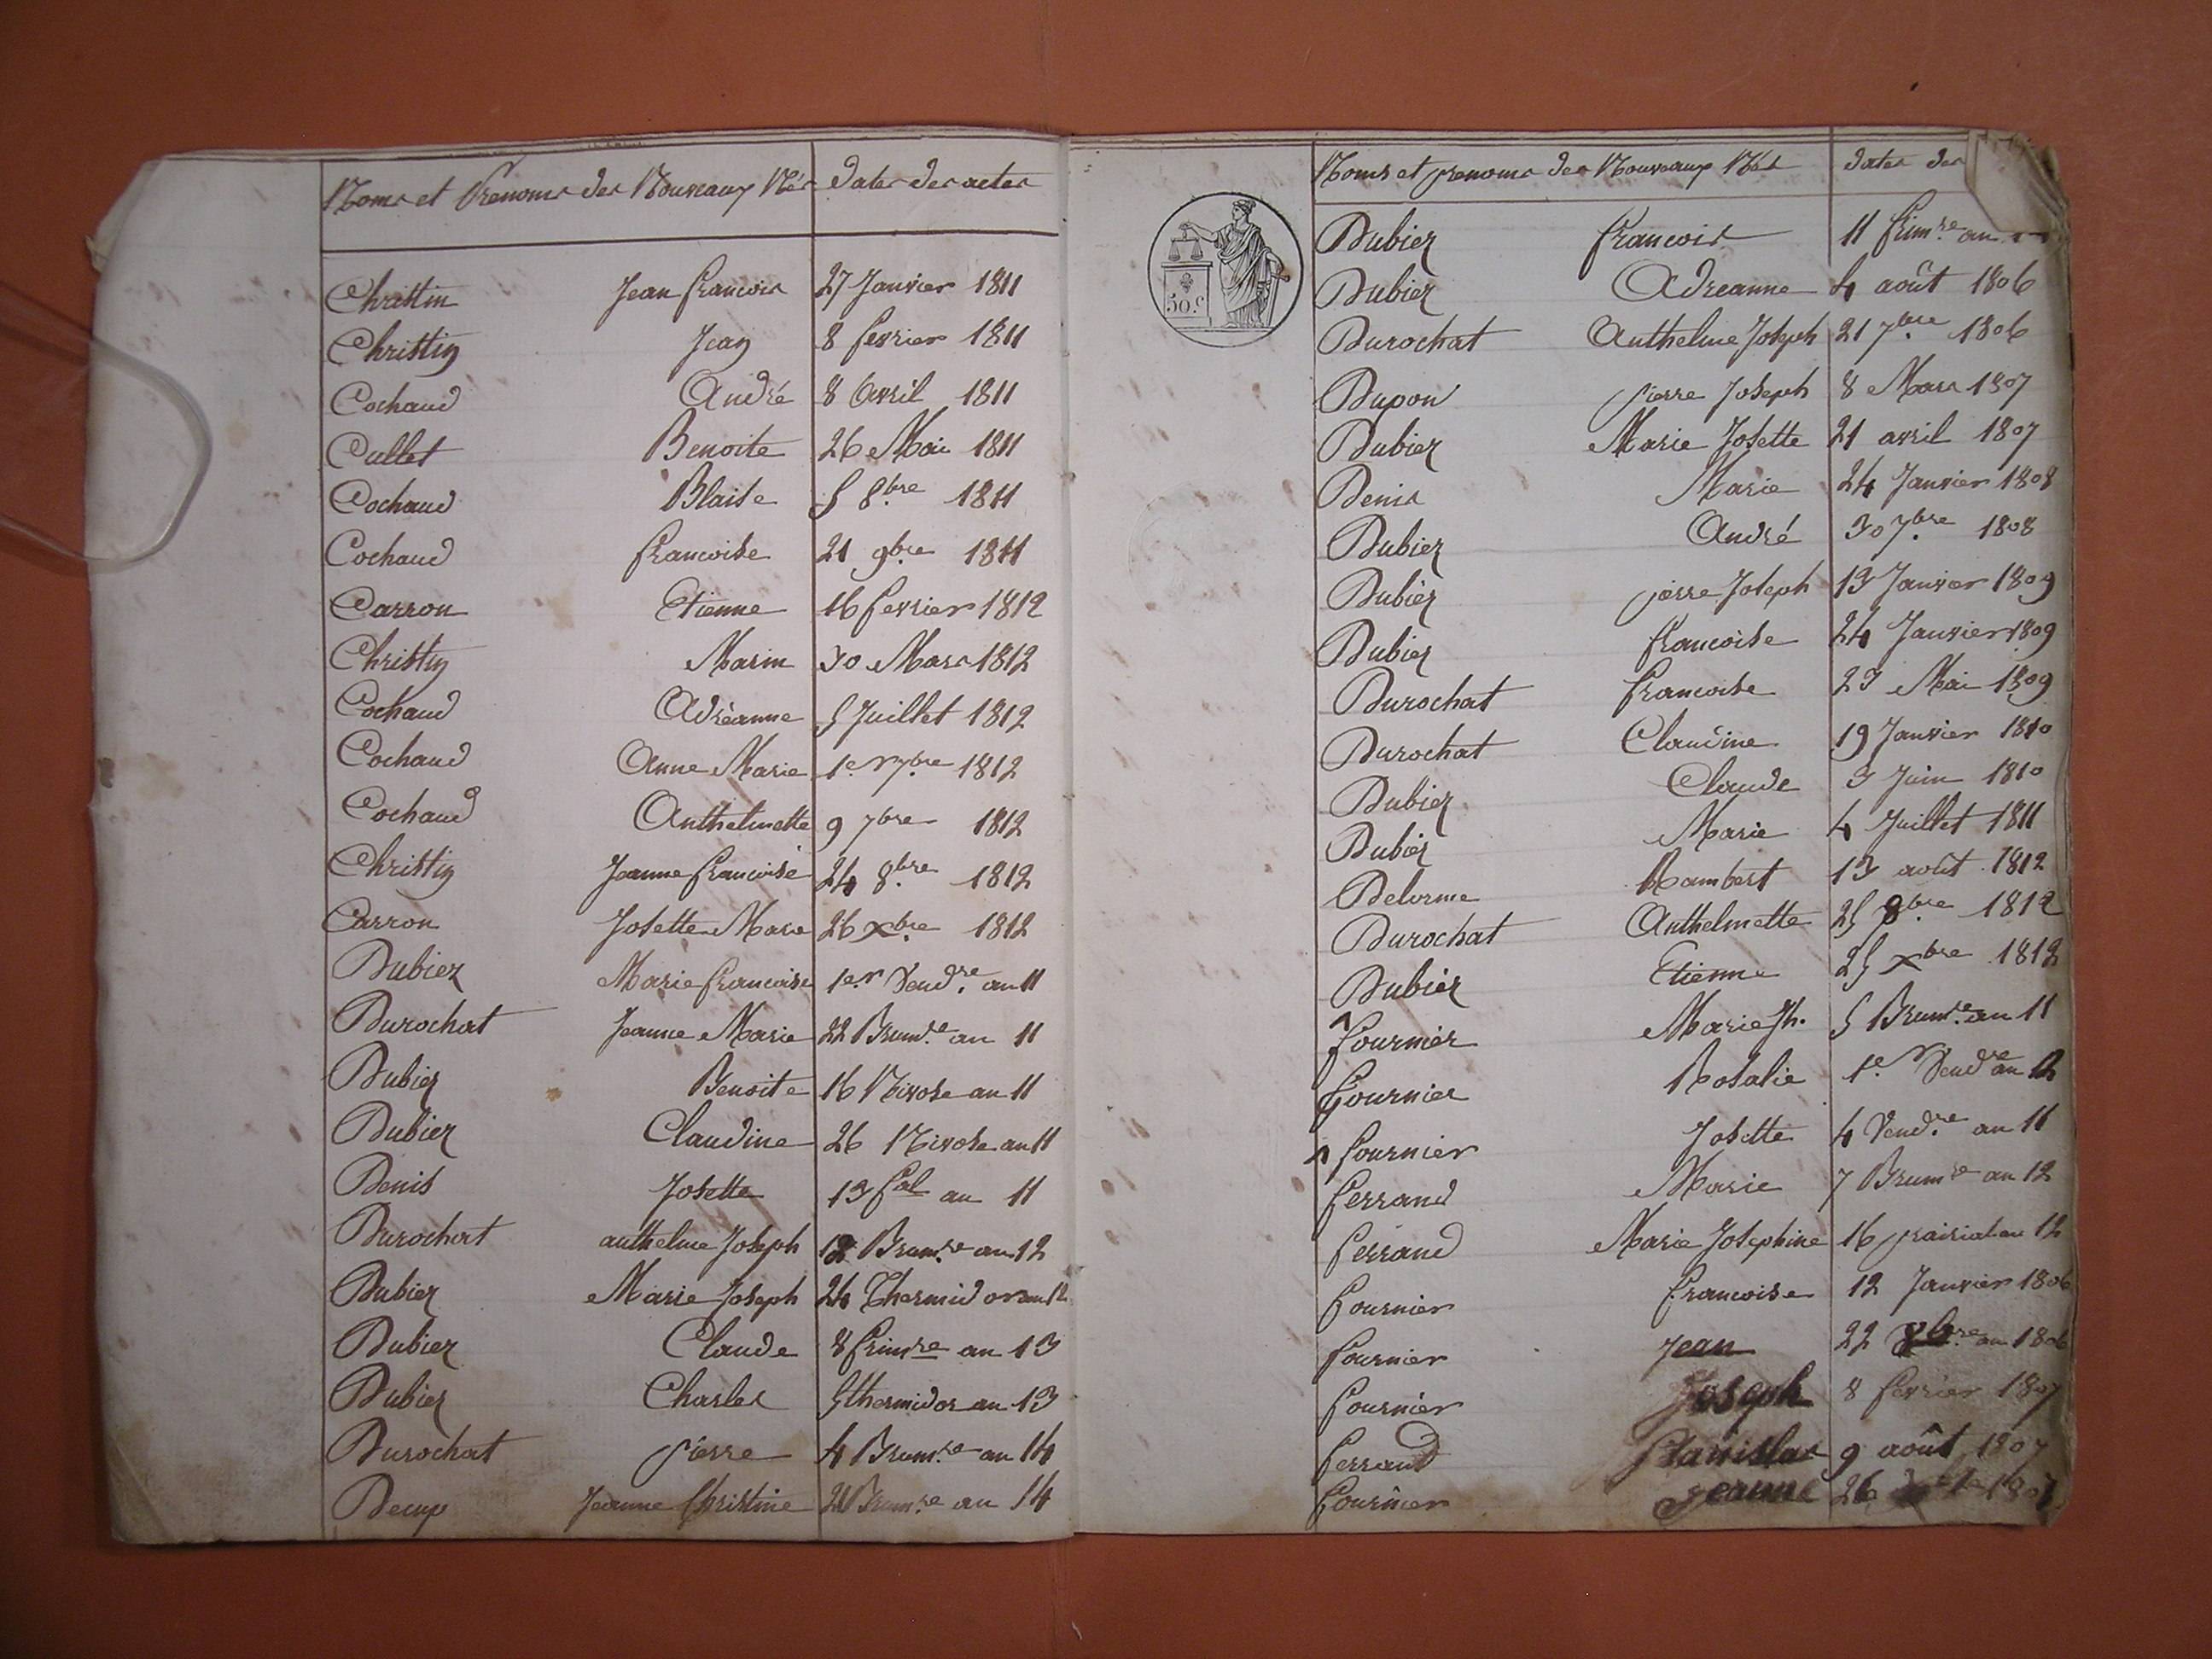 Noms et Prenoms des Nouveaux Nés Dates des actes
Christin Jean francois 27 Janvier 1811
Christin Jean 8 fevrier 1811
Cochaud André 8 Avril 1811
Cullet Benoite 26 Mai 1811
Cochaud Blaise 5 8.bre 1811
Cochaud francoise 21 9.bre 1811
Carron Etienne 16 fevrier 1812
Christin Marin 30 Mars 1812
Cochaud Adréanne 5 Juillet 1812
Cochaud Anne Marie 1er 7bre 1812
Cochaud Anthelmette 9 7bre 1812
Christin Jeanne francoise 24 8.bre 1812
Carron Josette Marie 26 Xbre 1812
Dubiez Marie francoise 1er Vend.re an 11
Durochat Jeanne Marie 22 Brum.re an 11
Dubiez Benoite 16 Nivose an 11
Dubiez Claudine 26 Nivose an 11
Denis Josette 13 fal an 11
Durochat anthelme Joseph 12 Brum.re an 12
Dubiez Marie Joseph 24 Thermidor an 12
Dubiez Claude 8 frimre an 13
Dubiez Charles 5 thermidor an 13
Durochat pierre 4 Brum.re an 14
Decup Jeanne Christine Brum.re an 14
Noms et prenoms des Nouveaux Nés dates des
50.c
Dubiez francois 11 frim.re an
Dubiez Adreanne 4 août 1806
Durochat Anthelme Joseph 21 7.bre 1806
Dupon pierre Joseph 8 Mars 1807
Dubiez Marie Josette 21 avril 1807
Denis Marie 24 Janvier 1808
Dubiez André 30 7.bre 1808
Dubiez pierre Joseph 13 Janvier 1809
Dubiez francoise 24 Janvier 1809
Durochat francoise 23 Mai 1809
Durochat Claudine 19 Janvier 1810
Dubiez Claude 3 Juin 1810
Dubiez Marie 4 Juillet 1811
Delorme Rambert 13 août 1812
Durochat Anthelmette 25 8bre 1812
Dubiez Etienne 25 Xbre 1812
fournier Marie Jh. 5 Brum.re an 11
fournier Rosalie 1er Vendre an 12
fournier Josette 4 Vend.re an 11
ferrand Marie 7 Brumre an 12
ferrand Marie Josephine 16 prairial an 12
fournier francoise 12 Janvier 1806
fournier Jean 22 8bre an 1806
fournier Joseph 8 fevrier 1807
ferrand Stanislas 9 août 1807
fournier Jeanne 26 1807